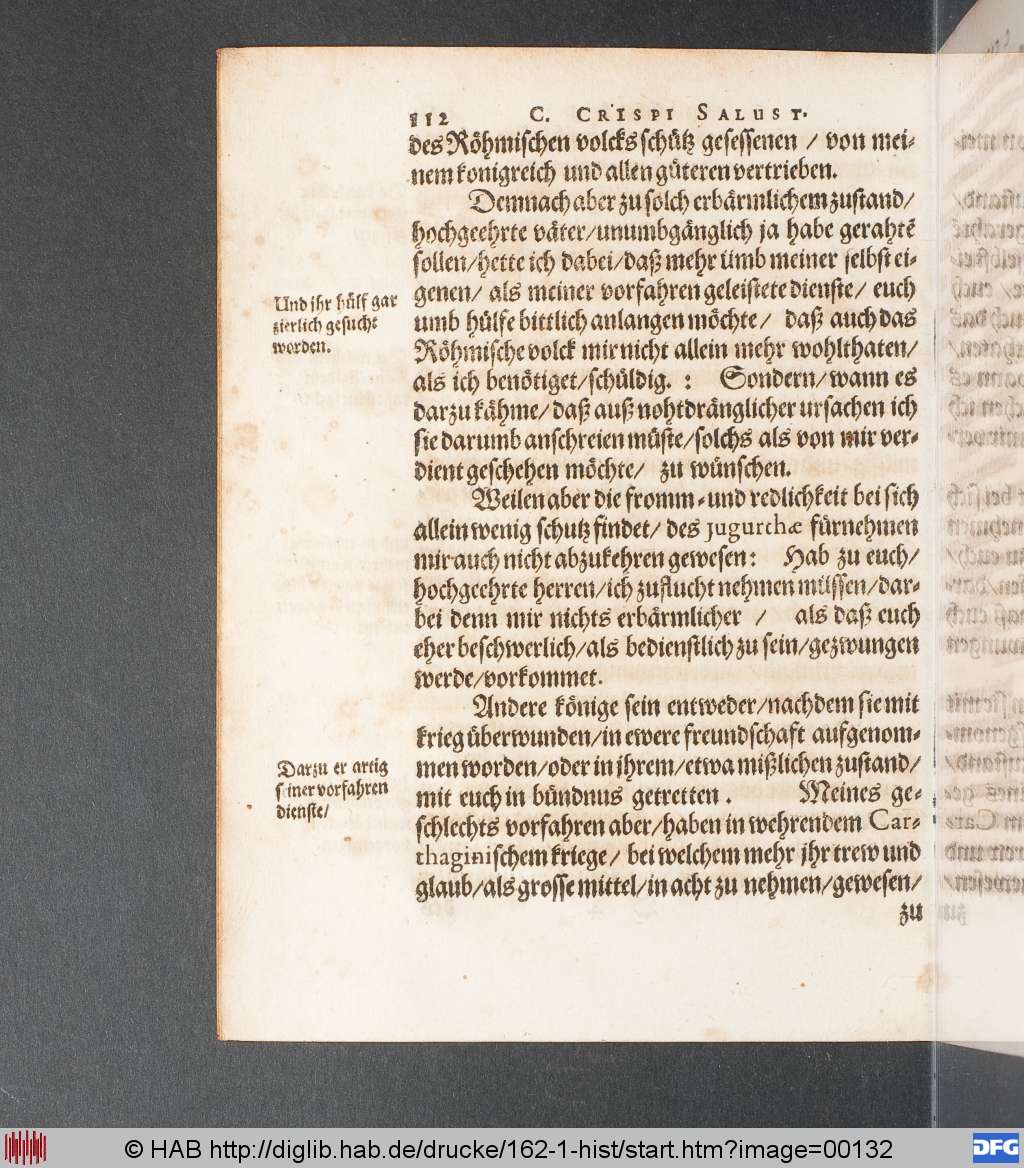 112 C. CRISPI SALUST.
des Röhmischen volcks schütz gesessenen / von mei-
nem konigreich und allen güteren vertrieben.
Demnach aber zu solch erbärmlichem zustand/
hochgeehrte väter/unumbgänglich ja habe gerahtẽ
sollen/hette ich dabei/daß mehr ümb meiner selbst ei-
genen/ als meiner vorfahren geleistete dienste/ euch
umb hülfe bittlich anlangen möchte/ daß auch das
Röhmische volck mir nicht allein mehr wohlthaten/
als ich benötiget/schüldig. : Sondern/wann es
darzu kähme/daß auß nohtdränglicher ursachen ich
sie darumb anschreien müste/solchs als von mir ver-
dient geschehen möchte/ zu wünschen.
Weilen aber die fromm-und redlichkeit bei sich
allein wenig schutz findet/ des jugurthæ fürnehmen
mir auch nicht abzukehren gewesen: Hab zu euch/
hochgeehrte herren/ich zuflucht nehmen müssen/dar-
bei denn mir nichts erbärmlicher / als daß euch
eher beschwerlich/als bedienstlich zu sein/gezwungen
werde/vorkommet.
Andere könige sein entweder/nachdem sie mit
krieg überwunden/in ewere freundschaft aufgenom-
men worden/oder in jhrem/etwa mißlichen zustand/
mit euch in bündnus getretten. Meines ge-
schlechts vorfahren aber/haben in wehrendem Car-
thaginischem kriege/ bei welchem mehr jhr trew und
glaub/als grosse mittel/in acht zu nehmen/gewesen/
zu
Und jhr hülf gar
zierlich gesucht
worden.
Darzu er artig
seiner vorfahren
dienste/
© HAB http://diglib.hab.de/drucke/162-1-hist/start.htm?image=00132
DFG